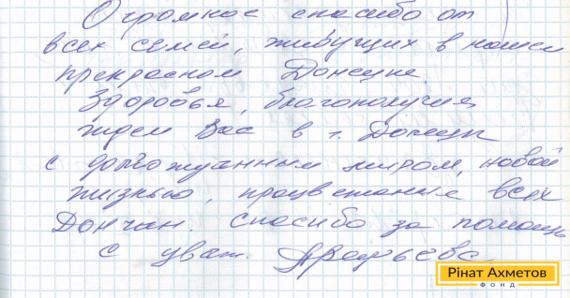 Огромное спасибо от
всех семей, живущих в нашем
прекрасном Донецке.
Здоровья, благополучия
ждем Вас в г. Донецк
с долгожданным миром, новой
жизнью, процветание всех
Дончан. Спасибо за помощь
с уваж.
Рінат Ахметов
ФОНД